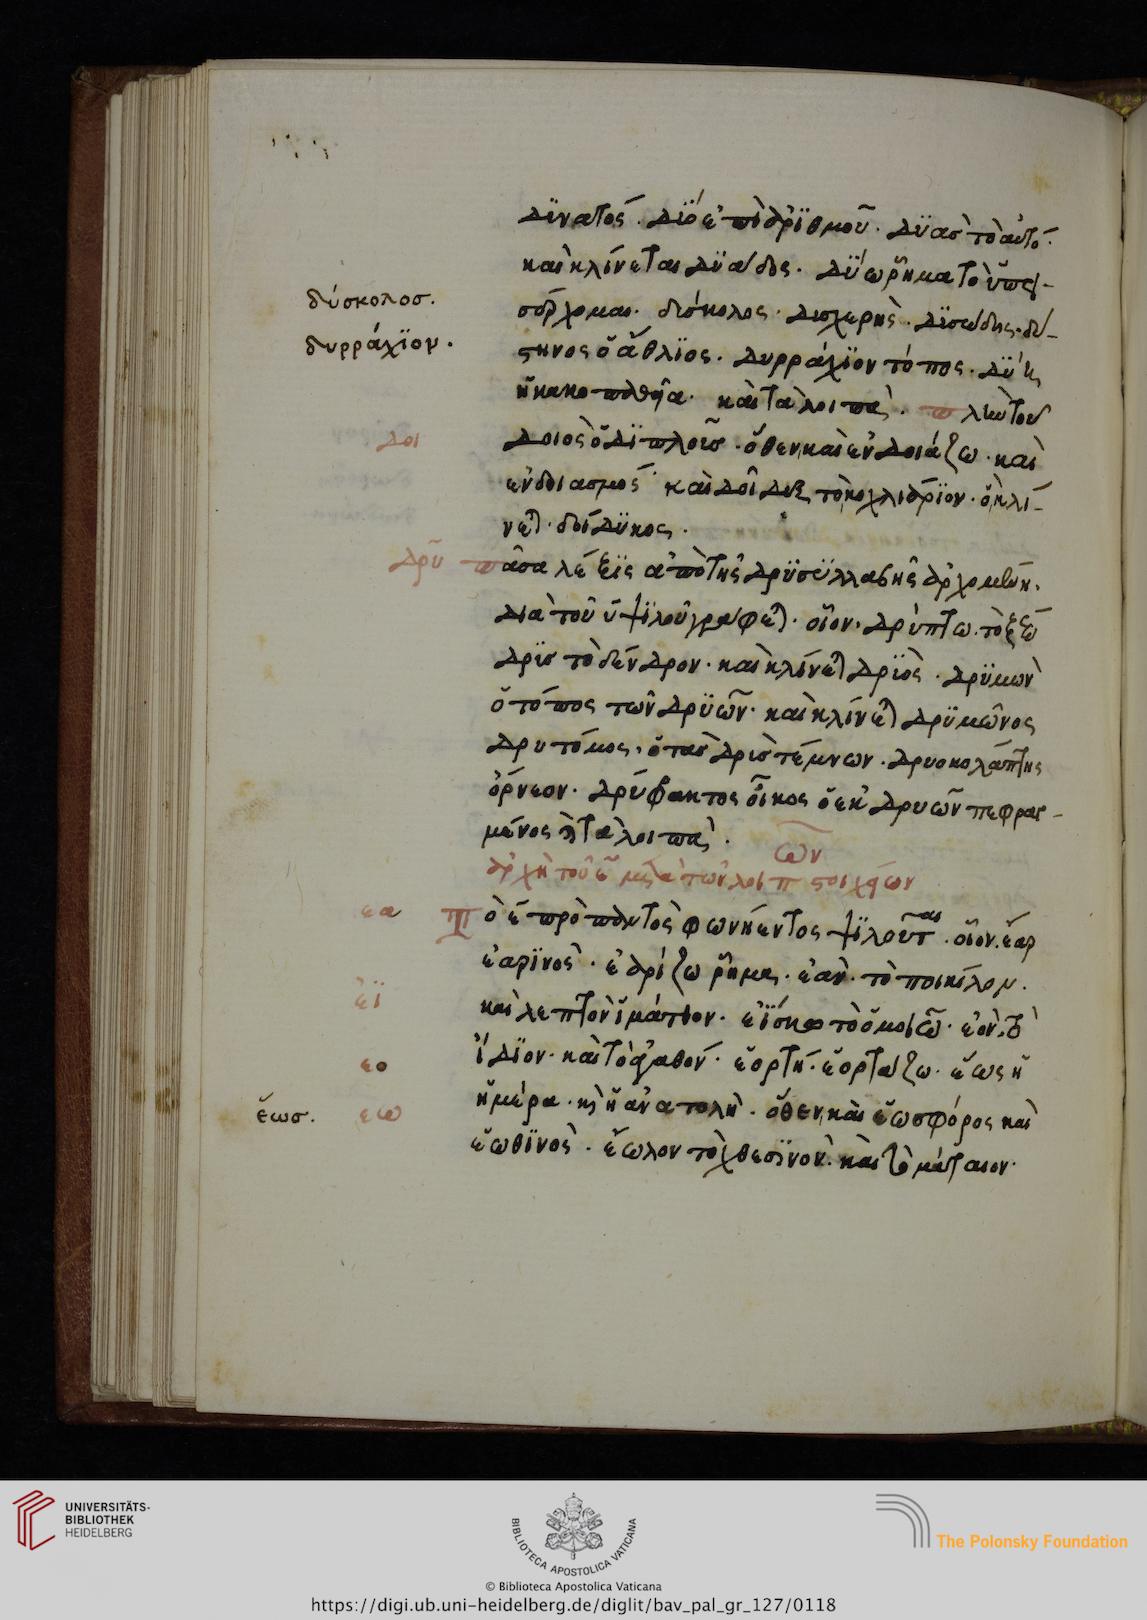 δϋνατός. δϋο ἐπὶ ἀρϊθμοῦ. δϋασ τὸ αὐτό.
καὶ κλίνεται δϋάδος. δϋω ῥῆμα τὸ ὑπει-
δύσκολοσ.
σέρχομαι. δύσκολος. δυσχερής. δϋσώδης. δύ-
δυρράχϊον.
στηνος ὁ ἄθλϊος. δυρράχϊον τόπος. δϋη
ἡ κακοπάθεια. καὶ τὰ λοιπά. πλὴν τοῦ
δοι
δοιος ὁ δϊπλοῦσ. ὅθεν καὶ ἐνδοιάζω. καὶ
ἐνδοιασμός καὶ δοῖδυξ τὸ κοχλιάρϊον. ὃ κλί-
νεται. δοίδϋκος.
δρυ
πᾶσα λέξϊς ἀπὸ τῆς δρϋ συλλαβῆς ἀρχομένη.
διὰ τοῦ ῡ ψϊλοῦ γράφεται. οἷον. δρύπτω. τὸ ξέω
δρϋσ τὸ δένδρον. καὶ κλίνεται δρϋός. δρϋμών
ὁ τόπος τῶν δρϋῶν. καὶ κλίνεται δρϋμῶνος
δρυτόμος. ὁ τὰσ δρῦς τέμνων. δρυοκολάπτης
ὄρνεον. δρύφακτος οἶκος ὁ ἐκ δρυῶν πεφραγ-
μένος καὶ τὰ λοιπά.
ἀρχὴ τοῦ ε μετὰ τῶν λοιπῶν στοιχείων
εα
Τὸ ε πρὸ παντὸς φωνήεντος ψϊλοῦται. οἷον. ἔαρ
ἐαρϊνός. ἐαρίζω ῥῆμα. ἐανὸν τὸ ποικίλον.
εϊ
καὶ λεπτὸν ἱμάτιον. ἐΐσκω τὸ ὁμοιῶ. ἐὸν. τὸ
εο
ἴδϊον. καὶ τὸ ἀγαθόν. ἑορτή. ἑορτάζω. ἕως ἡ
ἕωσ.
εω
ἡμέρα. καὶ ἡ ἀνατολή. ὅθεν καὶ ἑωσφόρος καὶ
ἑωθϊνός. ἕωλον τὸ χθεσϊνόν. καὶ τὸ μάταιον.
UNIVERSITÄTS-
BIBLIOTHEK
HEIDELBERG
BIBLIOTECA APOSTOLICA VATICANA
The Polonsky Foundation
© Biblioteca Apostolica Vaticana
https://digi.ub.uni-heidelberg.de/diglit/bav_pal_gr_127/0118